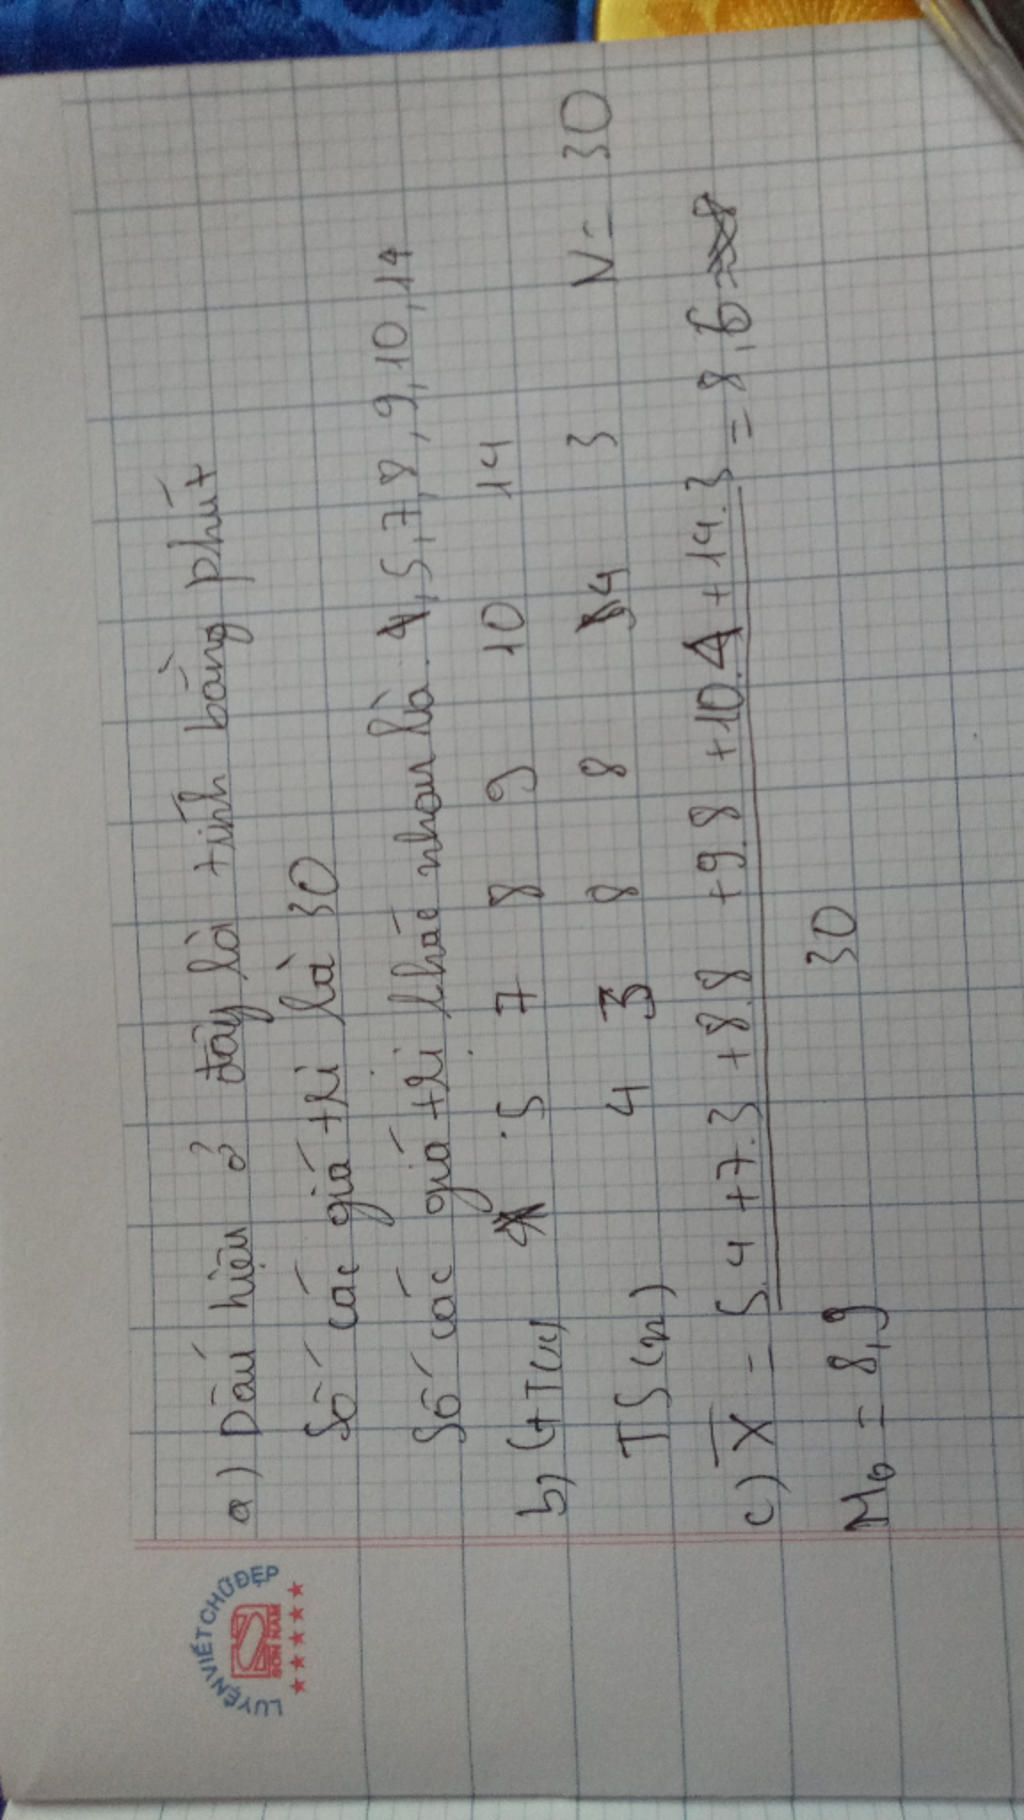 LUYỆN VIẾT CHỮ ĐẸP
SƠN NAM
a) Dấu hiệu ở đây là tính bằng phút
Số các giá tri là 30
Số các giá tri khác nhau là 4,5,7,8,9,10,14
b) GT(x) 5 7 8 9 10 14
TS(n) 4 3 8 8 4 3 N=30
c) X̄ = 5.4+7.3+8.8+9.8+10.4+14.3 = 8,6
30
M₀ = 8,9